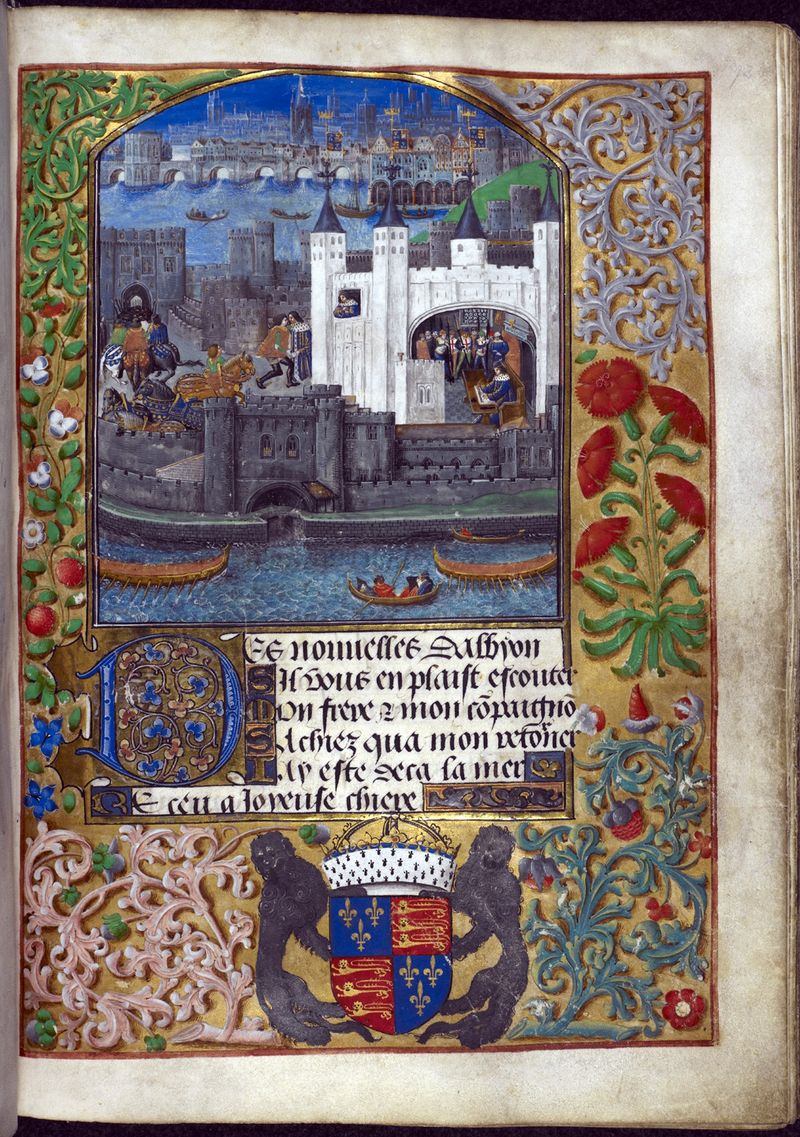 Des nouuelles Dalbyon
Sil vous en plaist escouter
Mon frere & mon cōpaignō
Sachiez qua mon retōrner
Iay este deca la mer
Receu a Joyeuse chiere